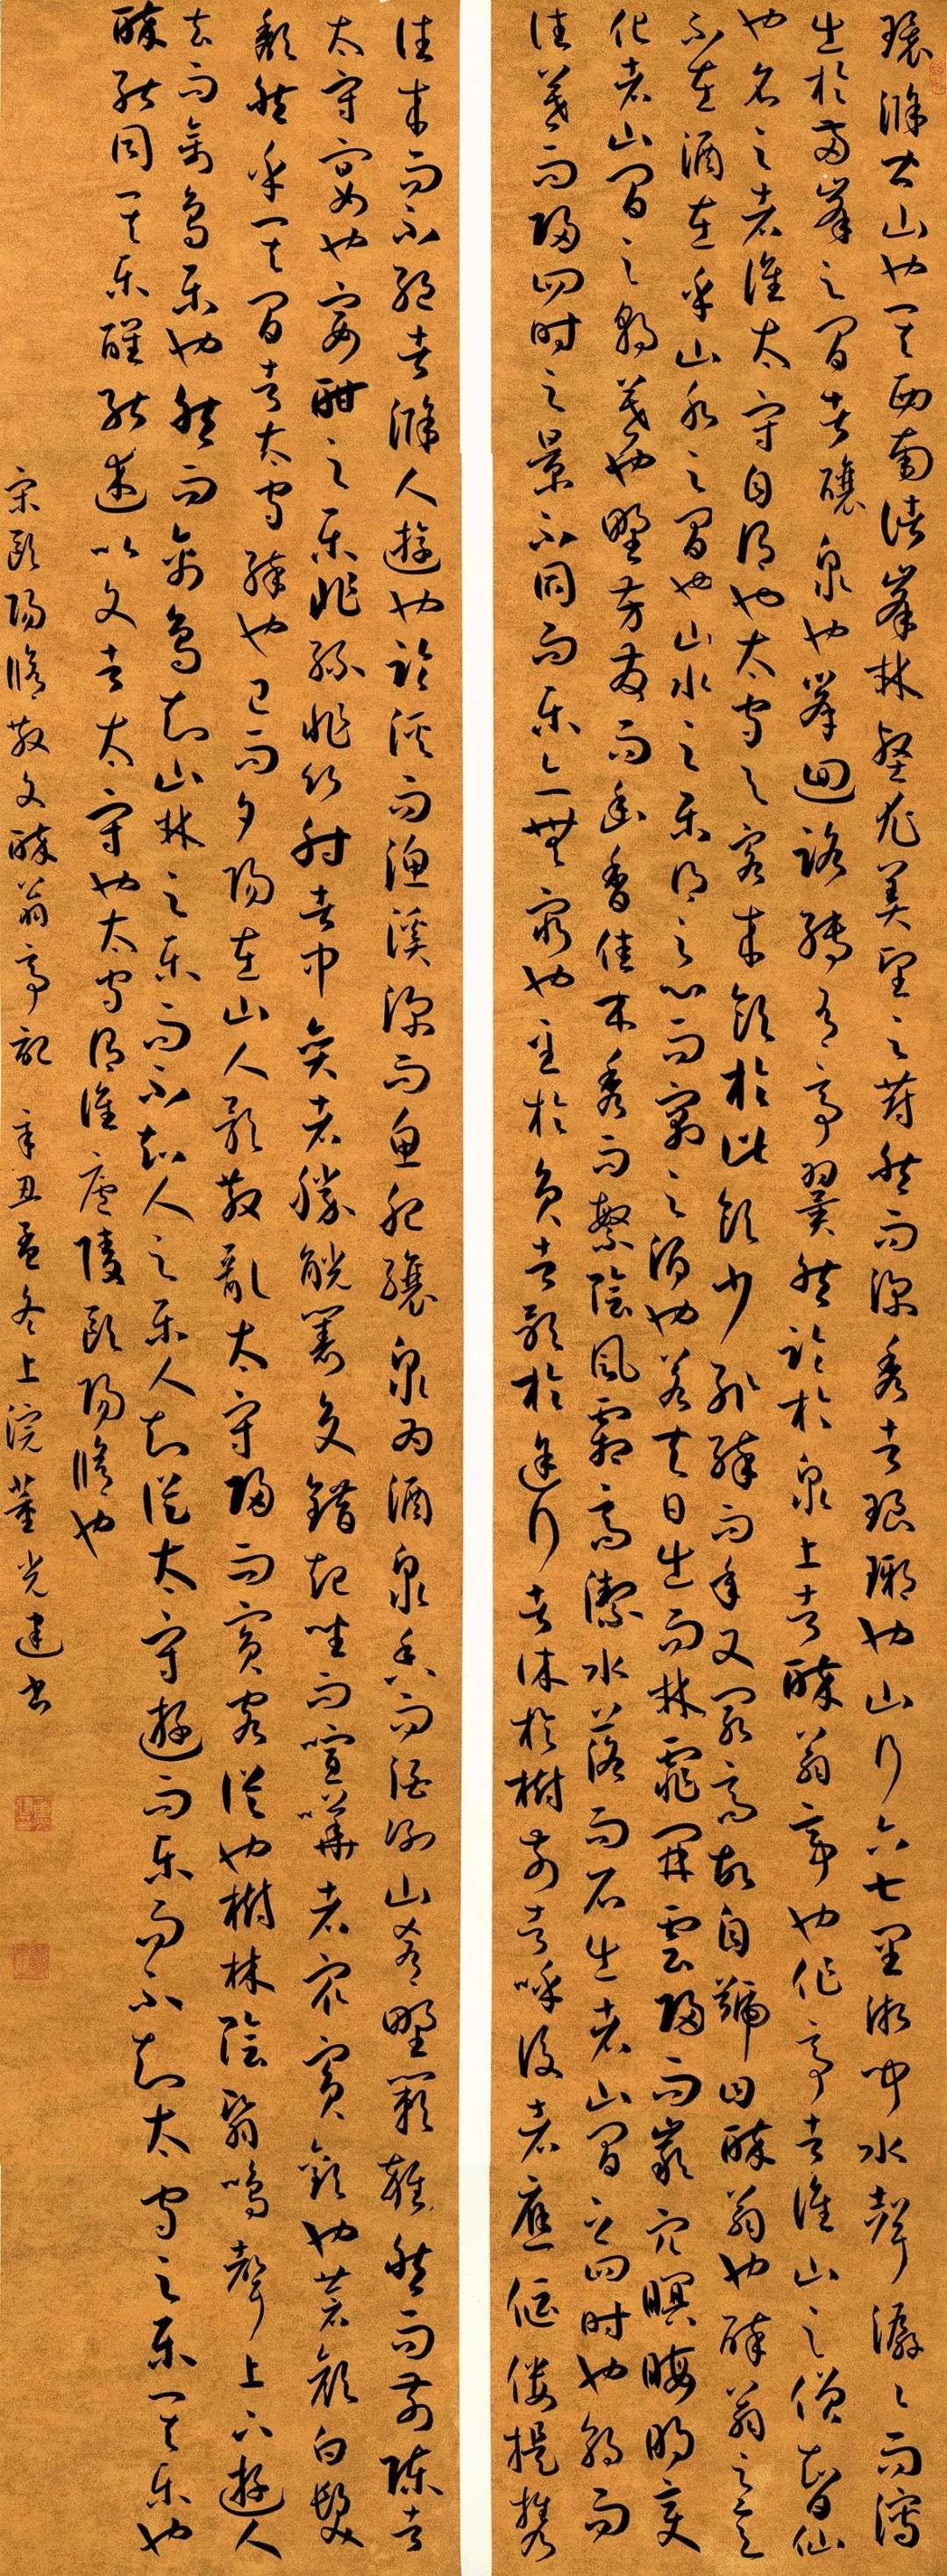 環滁皆山也其西南諸峯林壑尤美望之蔚然而深秀者琅琊也山行六七里漸聞水聲潺々而瀉
出於兩峯之間者釀泉也峯回路轉有亭翼然臨於泉上者醉翁亭也作亭者誰山之僧智仙
也名之者誰太守自謂也太守與客來飲於此飲少輒醉而年又最高故自號曰醉翁也醉翁之意
不在酒在乎山水之間也山水之樂得之心而寓之酒也若夫日出而林霏開雲歸而巖穴暝晦明變
化者山間之朝暮也野芳發而幽香佳木秀而繁陰風霜高潔水落而石出者山間之四時也朝而
往暮而歸四時之景不同而樂亦無窮也至於負者歌於途行者休於樹前者呼後者應傴僂提攜
往來而不絕者滁人遊也臨溪而漁溪深而魚肥釀泉為酒泉香而酒洌山肴野蔌雜然而前陳者
太守宴也宴酣之樂非絲非竹射者中奕者勝觥籌交錯起坐而諠譁者衆賓歡也蒼顏白髮
頹然乎其間者太守醉也已而夕陽在山人影散亂太守歸而賓客從也樹林陰翳鳴聲上下遊人
去而禽鳥樂也然而禽鳥知山林之樂而不知人之樂人知從太守遊而樂而不知太守之樂其樂也
醉能同其樂醒能述以文者太守也太守謂誰廬陵歐陽脩也
宋歐陽脩散文醉翁亭記 辛丑孟冬上浣董光建書